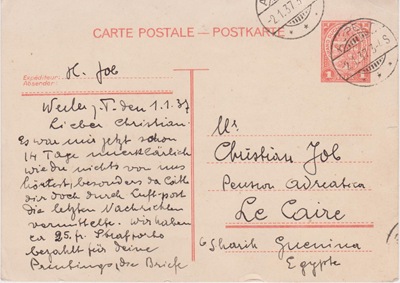 CARTE POSTALE – POSTKARTE
2.1.37
Expéditeur:
Absender:
H. Job
den 1.1.37
Lieber Christian.
Es war mir jetzt schon
14 Tage unerklärlich
wie du nichts von uns
hörtest besonders da
dir doch durch Luftpost
die letzten Nachrichten
vermittelte. Wir haben
ca 25 fr. Strafporto
bezahlt für deine
Briefe
Mr
Christian Job
Pension Adreatica
Le Caire
6 Sharih
Egypte
1